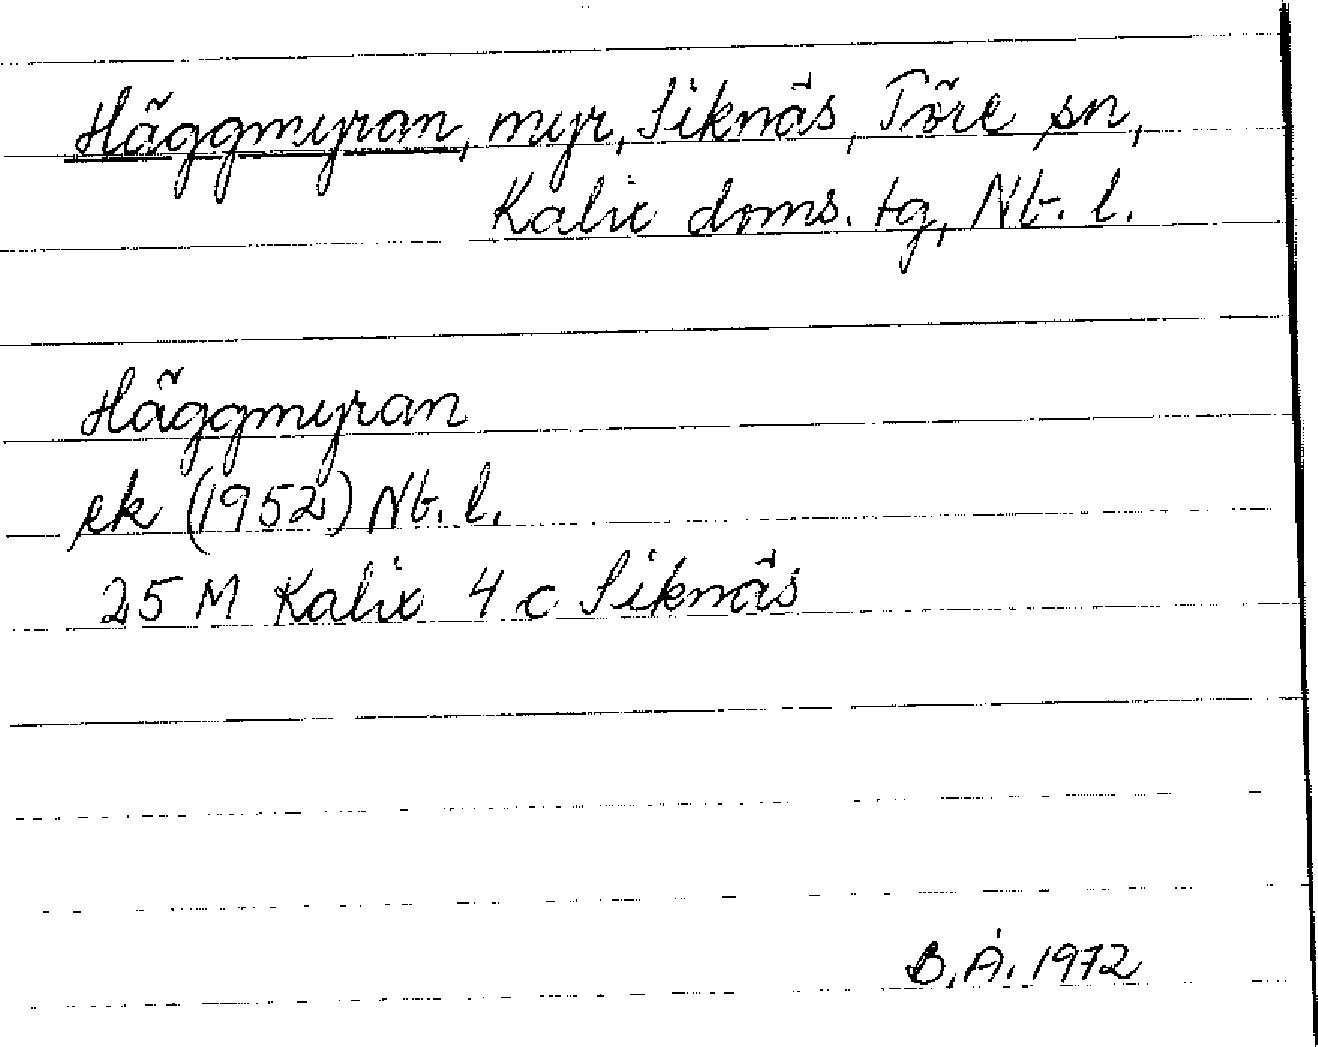 Häggmyran, myr, Siknäs, Töre sn,
Kalix doms. tg, Nb. l.
Häggmyran
ek (1952) Nb. l.
25 M Kalix 4 c Siknäs
B.Å. 1972